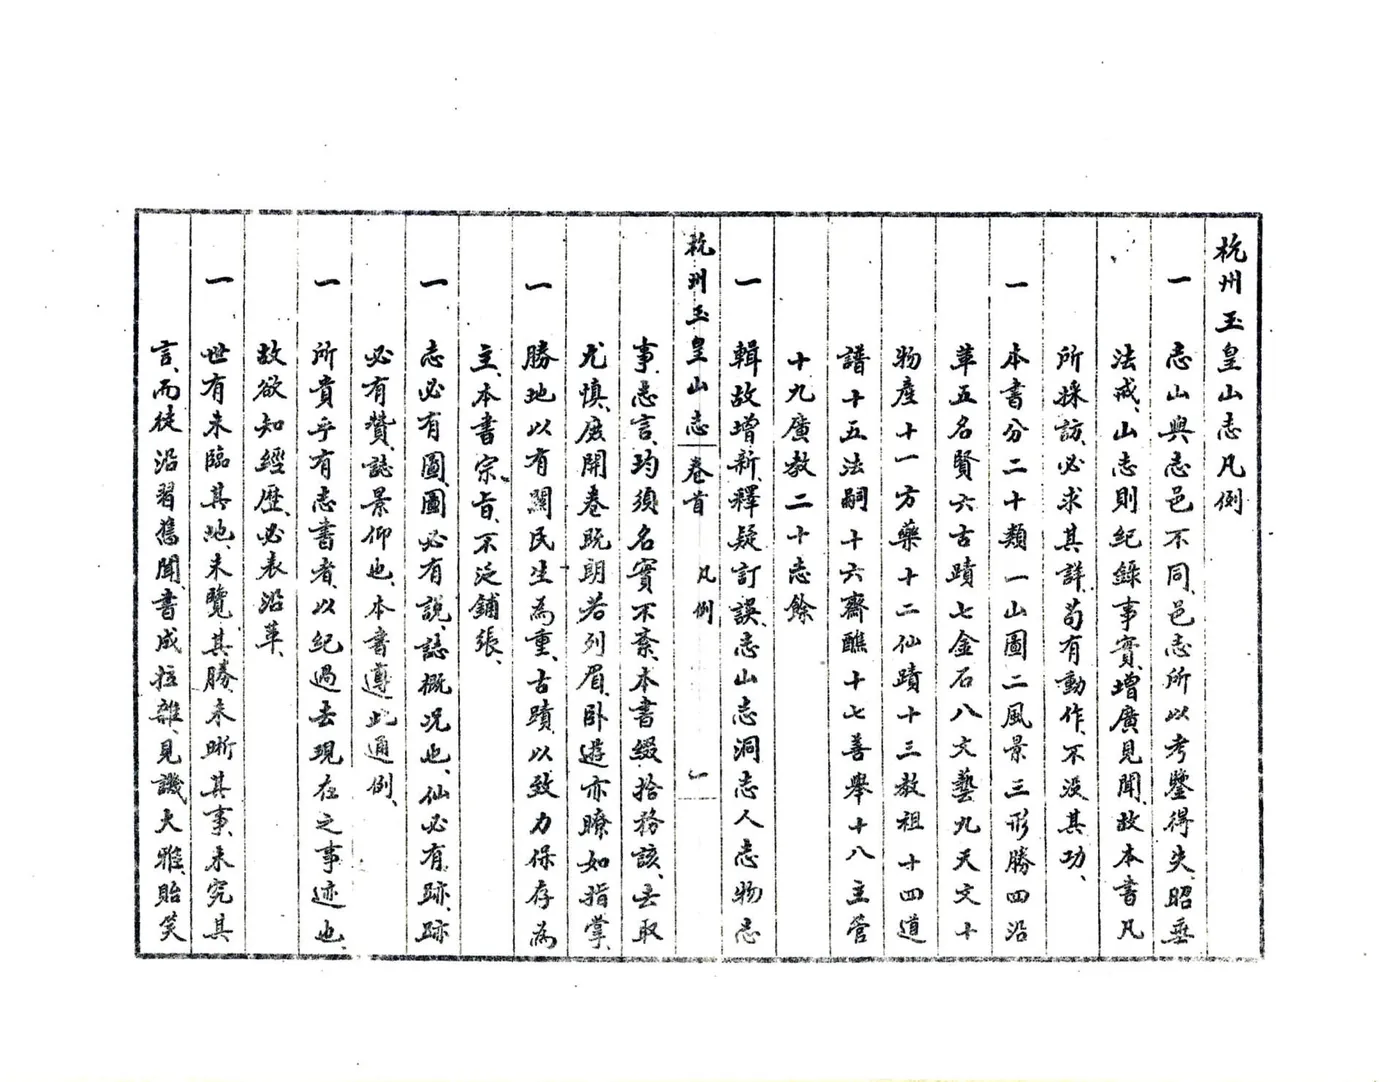 杭州玉皇山志凡例
一 志山與志邑不同、邑志所以考鑒得失、昭垂
法戒、山志則紀錄事實、增廣見聞、故本書凡
所採訪、必求其詳、苟有動作、不沒其功、
一 本書分二十類一山圖二風景三形勝四沿
革五名賢六古蹟七金石八文藝九天文十
物產十一方藥十二仙蹟十三教祖十四道
譜十五法嗣十六齋醮十七善舉十八主管
十九廣教二十志餘
一 輯故增新、釋疑訂誤、志山志洞志人志物志
杭州玉皇山志 卷首 凡例 一
事、志言、均須名實不紊、本書綴拾務該、去取
尤慎、庶開卷既朗若列眉、卧遊亦瞭如指掌、
一 勝地以有關民生為重、古蹟、以致力保存為
主、本書宗旨、不泛鋪張、
一 志必有圖、圖必有說、誌概況也、仙必有跡、跡
必有贊、誌景仰也、本書遵此通例、
一 所貴乎有志書者、以紀過去現在之事迹也、
故欲知經歷、必表沿革、
一 世有未臨其地、未覽其勝、未晰其事、未究其
言、而徒沿習舊聞、書成拉雜、見譏大雅、貽笑